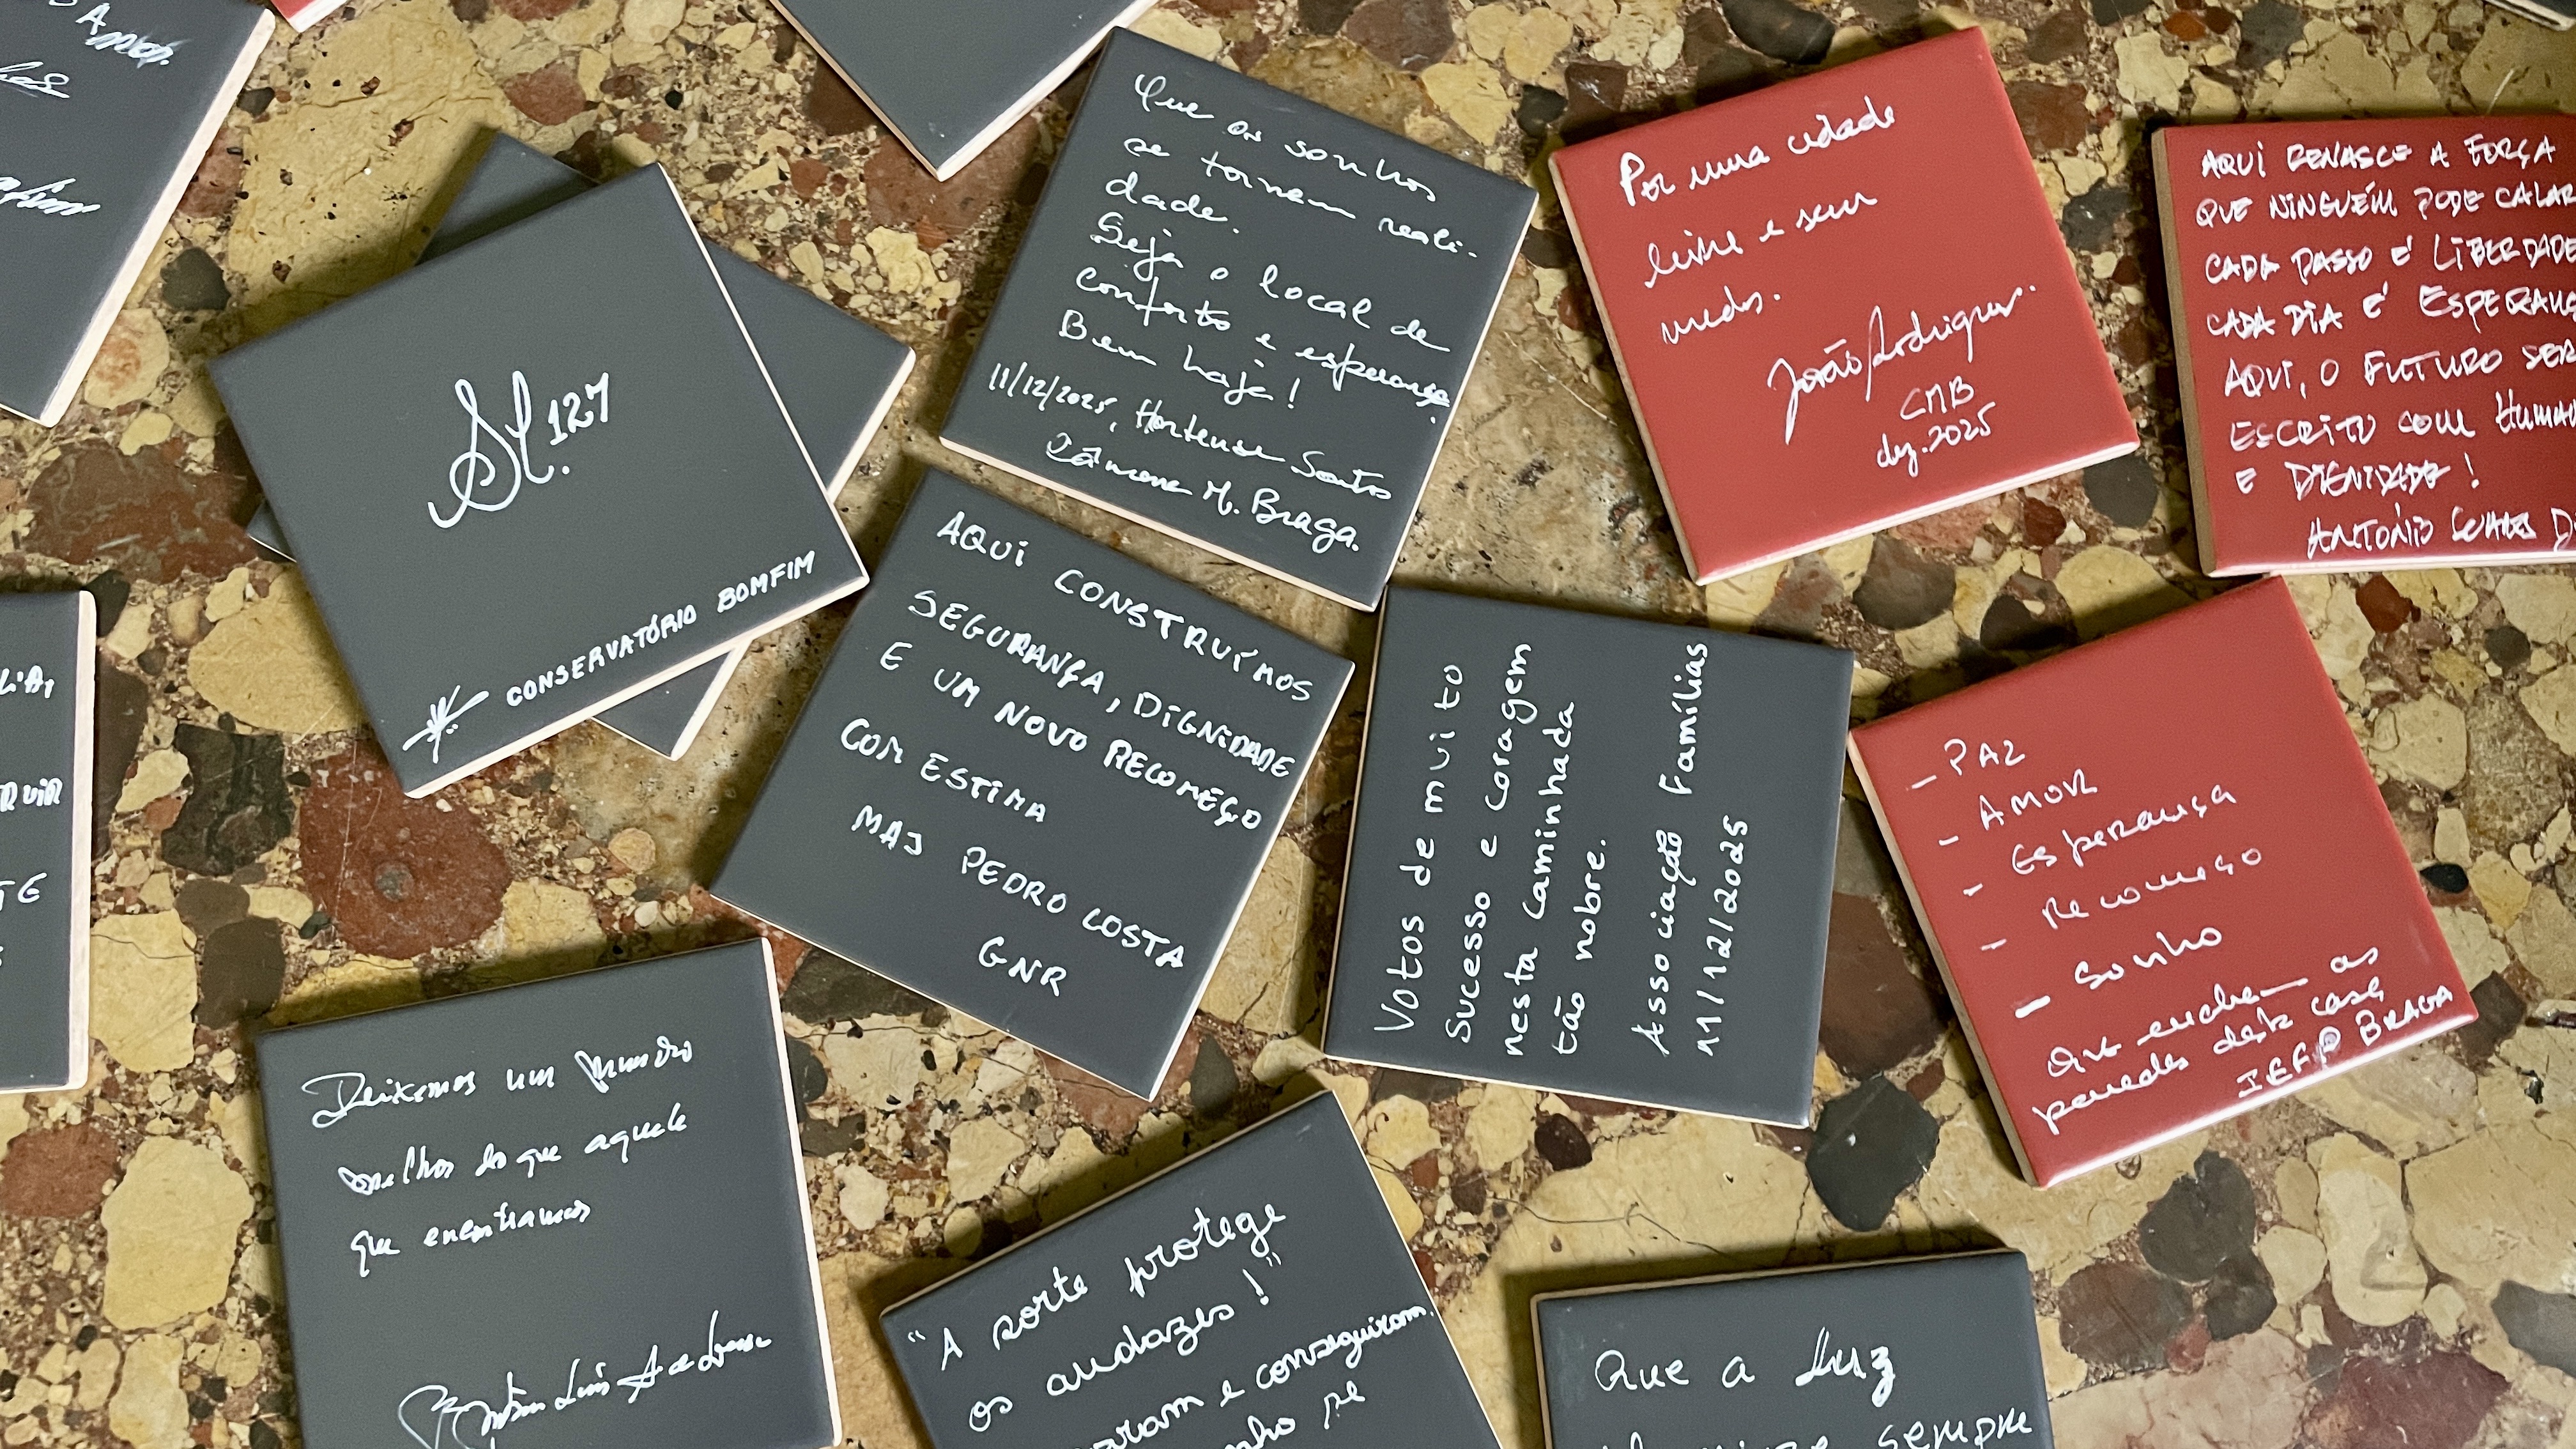 Amor.
Que os sonhos
se tornem reali-
dade.
Seja o local de
conforto e esperança.
Bem haja!
11/12/2025, Hortense Santos
Câmara M. Braga.
Por uma cidade
livre e sem
medos.
João Rodrigues.
CMB
dez. 2025
AQUI RENASCE A FORÇA
QUE NINGUÉM PODE CALAR
CADA PASSO É LIBERDADE
CADA DIA É
AQUI, O FUTURO
ESCRITO COM
E DIGNIDADE!
ANTÓNIO
127
CONSERVATÓRIO BOMFIM
AQUI CONSTRUÍMOS
SEGURANÇA, DIGNIDADE
E UM NOVO RECOMEÇO
COM ESTIMA
MAJ PEDRO COSTA
GNR
Votos de muito
Sucesso e coragem
nesta caminhada
tão nobre.
Associação Famílias
11/12/2025
- PAZ
- AMOR
- Esperança
- Recomeço
- Sonho
Que enchem as
paredes desta casa
IEFP BRAGA
TE
Deixemos um mundo
melhor do que aquele
que encontramos
Luís
"A sorte protege
os audazes!"
e conseguiram.
Que a Luz
sempre